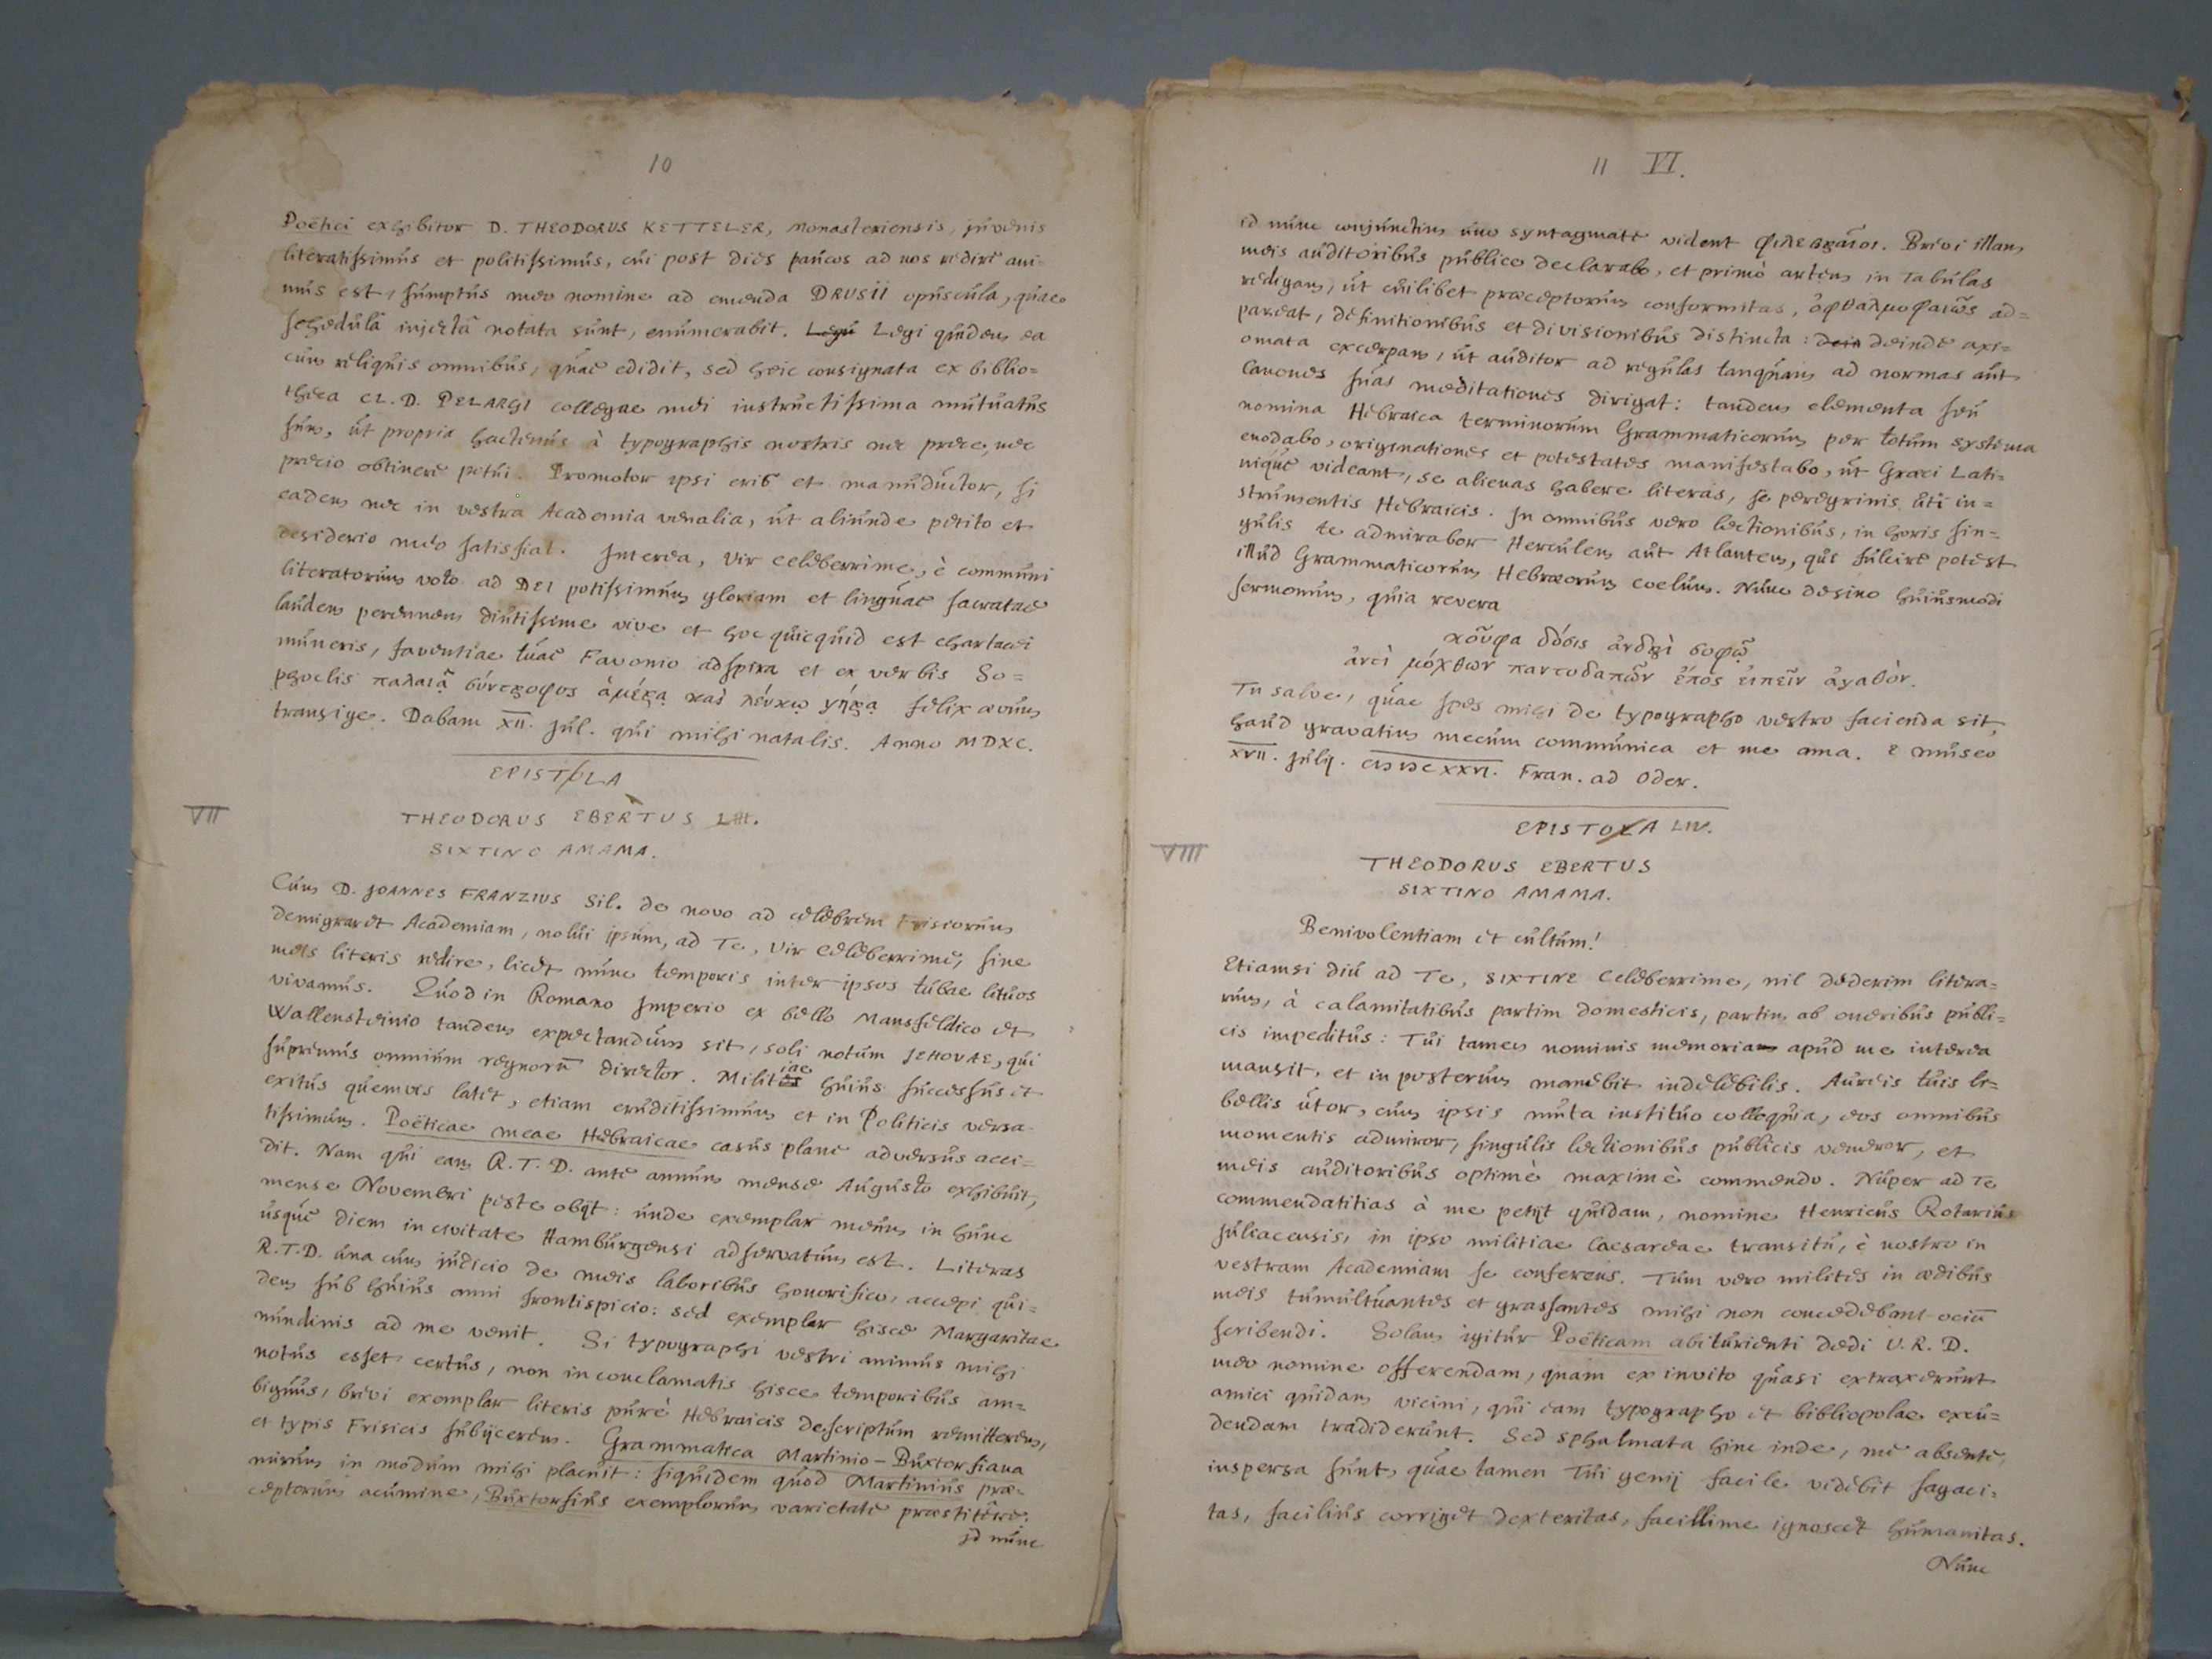 10
Poëtici exhibitor D. THEODORUS KETTELER, Monasteriensis, juvenis
literatissimus et politissimus, cui post dies paucos ad nos redire ani=
mus est, sumptus meo nomine ad emenda DRUSII opuscula, quae
schedulâ injectâ notata sunt, enumerabit. Legi quidem ea
cum reliquis omnibus, quae edidit, sed heic consignata ex biblio=
theca CL. D. PELARGI collegae mei instructissima mutuatus
sum, ut propria hactenus à typographis nostris nec prece, nec
precio obtinere potui. Promotor ipsi eris et manuductor, si
eadem nec in vestra Academia venalia, ut aliunde petito et
desiderio meo satisfiat. Interea, Vir celeberrime, è communi
literatorum voto ad DEI potissimum gloriam et linguae sacratae
laudem perennem diutissime vive et hoc quicquid est chartacei
muneris, faventiae tuae Favonio adspira et ex verbis So=
phoclis παλαιᾷ σύντροφος ἁμέρᾳ καὶ λεύκῳ γήρᾳ felix aevum
transige. Dabam XII. Jul. qui mihi natalis. Anno MDXC.
EPISTOLA
VII
THEODORUS EBERTUS LIII.
SIXTINO AMAMA.
Cum D. JOANNES FRANZIUS Sil. de novo ad celebrem Frisiorum
demigraret Academiam, nolui ipsum, ad Te, Vir Celeberrime, sine
meis literis redire, licet nunc temporis inter ipsos tubae lituos
vivamus. Quod in Romano Imperio ex bello Mansfeldico et
Wallensteinio tandem expectandum sit, soli notum JEHOVAE, qui
supremus omnium regnorū director. Militiae huius successus et
exitus quemvis latet, etiam eruditissimum et in Politicis versa=
tissimum. Poëticae meae Hebraicae casus plane adversus acci=
dit. Nam qui eam R.T.D. ante annum mense Augusto exhibuit,
mense Novembri peste obijt: unde exemplar meum in hunc
usque diem in civitate Hamburgensi adservatum est. Literas
R.T.D. una cum judicio de meis laboribus honorifico, accepi qui=
dem sub huius anni frontispicio: sed exemplar hisce Margaritae
nundinis ad me venit. Si typographi vestri animus mihi
notus esset certus, non in conclamatis hisce temporibus am=
biguus, brevi exemplar literis purè Hebraicis descriptum remitterem,
et typis Frisicis subijcerem. Grammatica Martinio-Buxtorfiana
mirum in modum mihi placuit: siquidem quod Martinius prae=
ceptorum acumine, Buxtorfius exemplorum varietate praestitêre.
id nunc
11 VI.
id nunc conjunctim uno syntagmate vident φιλεβραῖοι. Brevi illam
meis auditoribus publice declarabo, et primò artem in Tabulas
redigam, ut cuilibet praeceptorum conformitas, ὀφθαλμοφανῶς ad=
pareat, definitionibus et divisionibus distincta: dein deinde axi=
omata excerpam, ut auditor ad regulas tanquam ad normas aut
Canones suas meditationes dirigat: tandem elementa seu
nomina Hebraica terminorum Grammaticorum per totum systema
enodabo, originationes et potestates manifestabo, ut Graeci Lati=
nique videant, se alienas habere literas, se peregrinis uti in=
strumentis Hebraicis. In omnibus vero lectionibus, in horis sin=
gulis te admirabor Herculem aut Atlantem, qui fulcire potest
illud Grammaticorum Hebraeorum coelum. Nunc desino huiusmodi
sermonum, quia revera
κοῦφα δόσις ἀνδρὶ σοφῷ
ἀντὶ μόχθων παντοδαπῶν ἔπος εἰπεῖν ἀγαθόν.
Tu salve, quae spes mihi de typographo vestro facienda sit,
haud gravatim mecum communica et me ama. E museo
XVII. Julij. CIƆIƆCXXVI. Fran. ad Oder.
EPISTOLA LIV.
VIII
THEODORUS EBERTUS
SIXTINO AMAMA.
Benivolentiam et cultum!
Etiamsi diu ad Te, SIXTINE Celeberrime, nil dederim litera=
rum, à calamitatibus partim domesticis, partim ab oneribus publi=
cis impeditus: Tui tamen nominis memoria apud me interea
mansit, et in posterum manebit indelebilis. Aureis tuis li=
bellis utor, cum ipsis muta instituo colloquia, eos omnibus
momentis admiror, singulis lectionibus publicis veneror, et
meis auditoribus optimè maximè commendo. Nuper ad Te
commendatitias à me petijt quidam, nomine Henricus Rotarius
Juliacensis, in ipso militiae Caesareae transitu, è nostro in
vestram Academiam se conferens. Tum vero milites in aedibus
meis tumultuantes et grassantes mihi non concedebant ociū
scribendi. Solam igitur Poëticam abiturienti dedi V. R. D.
meo nomine offerendam, quam ex invito quasi extraxerunt
amici quidam vicini, qui eam typographo et bibliopolae excu=
dendam tradiderunt. Sed sphalmata hinc inde, me absente,
inspersa sunt, quae tamen Tui genij facile videbit sagaci=
tas, facilius corriget dexteritas, facillime ignoscet humanitas.
Nunc